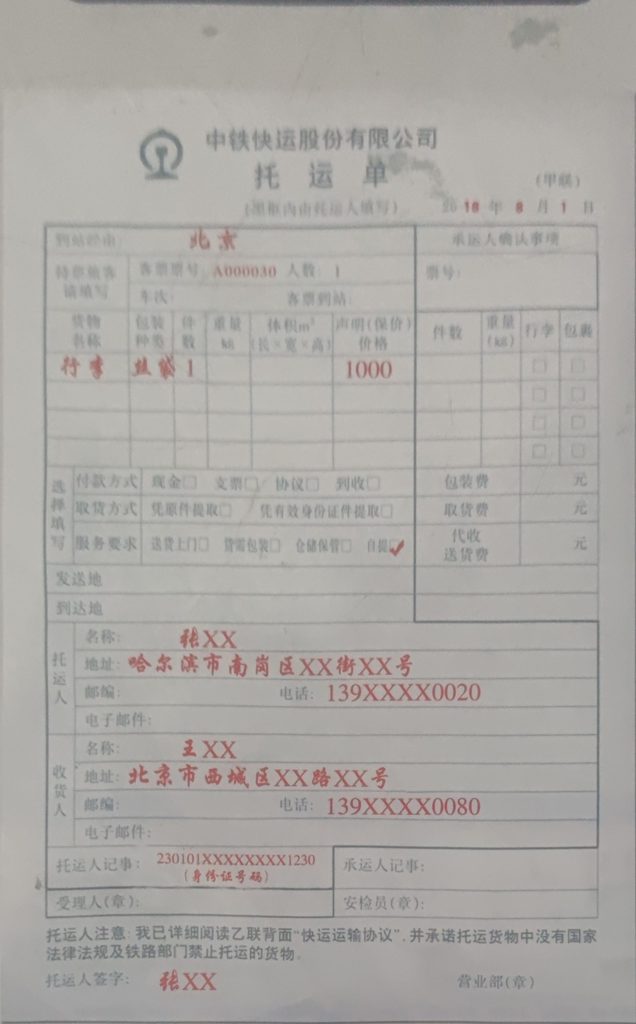 中铁快运股份有限公司
托运单
(甲联)
(黑框内由托运人填写) 2018年8月1日
到站经由 北京 承运人确认事项
持票旅客请填写 客票票号 A000030 人数 1 票号:
车次: 客票到站:
货物名称 包装种类 件数 重量kg 体积m³(长×宽×高) 声明(保价)价格 件数 重量(kg) 行李 包裹
行李 丝袋 1 1000 □ □
□ □
□ □
□ □
选择填写 付款方式 现金□ 支票□ 协议□ 到收□ 包装费 元
取货方式 凭原件提取□ 凭有效身份证件提取□ 取货费 元
服务要求 送货上门□ 货需包装□ 仓储保管□ 自提☑ 代收送货费 元
发送地
到达地
托运人 名称: 张XX
地址: 哈尔滨市南岗区XX街XX号
邮编: 电话: 139XXXX0020
电子邮件:
收货人 名称: 王XX
地址: 北京市西城区XX路XX号
邮编: 电话: 139XXXX0080
电子邮件:
托运人记事: 230101XXXXXXXX1230 承运人记事:
(身份证号码)
受理人(章): 安检员(章):
托运人注意: 我已详细阅读乙联背面“快运运输协议”, 并承诺托运货物中没有国家
法律法规及铁路部门禁止托运的货物。
托运人签字: 张XX 营业部(章)